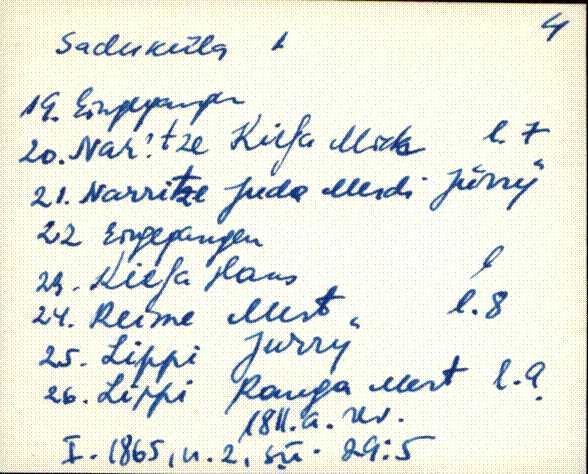 Saduküla 1 4
19. Eingegangen
20. Narritze Kiefa Mick l. 7
21. Narritze Juda Merdi Jürry
22 Eingegangen
23. Kiefa Hans
24. Reime Mert l. 8
25. Lippi Jurry
26. Lippi Ranga Mert l. 9
1811. a. rev.
I. 1865, n. 2, sü. 29:5